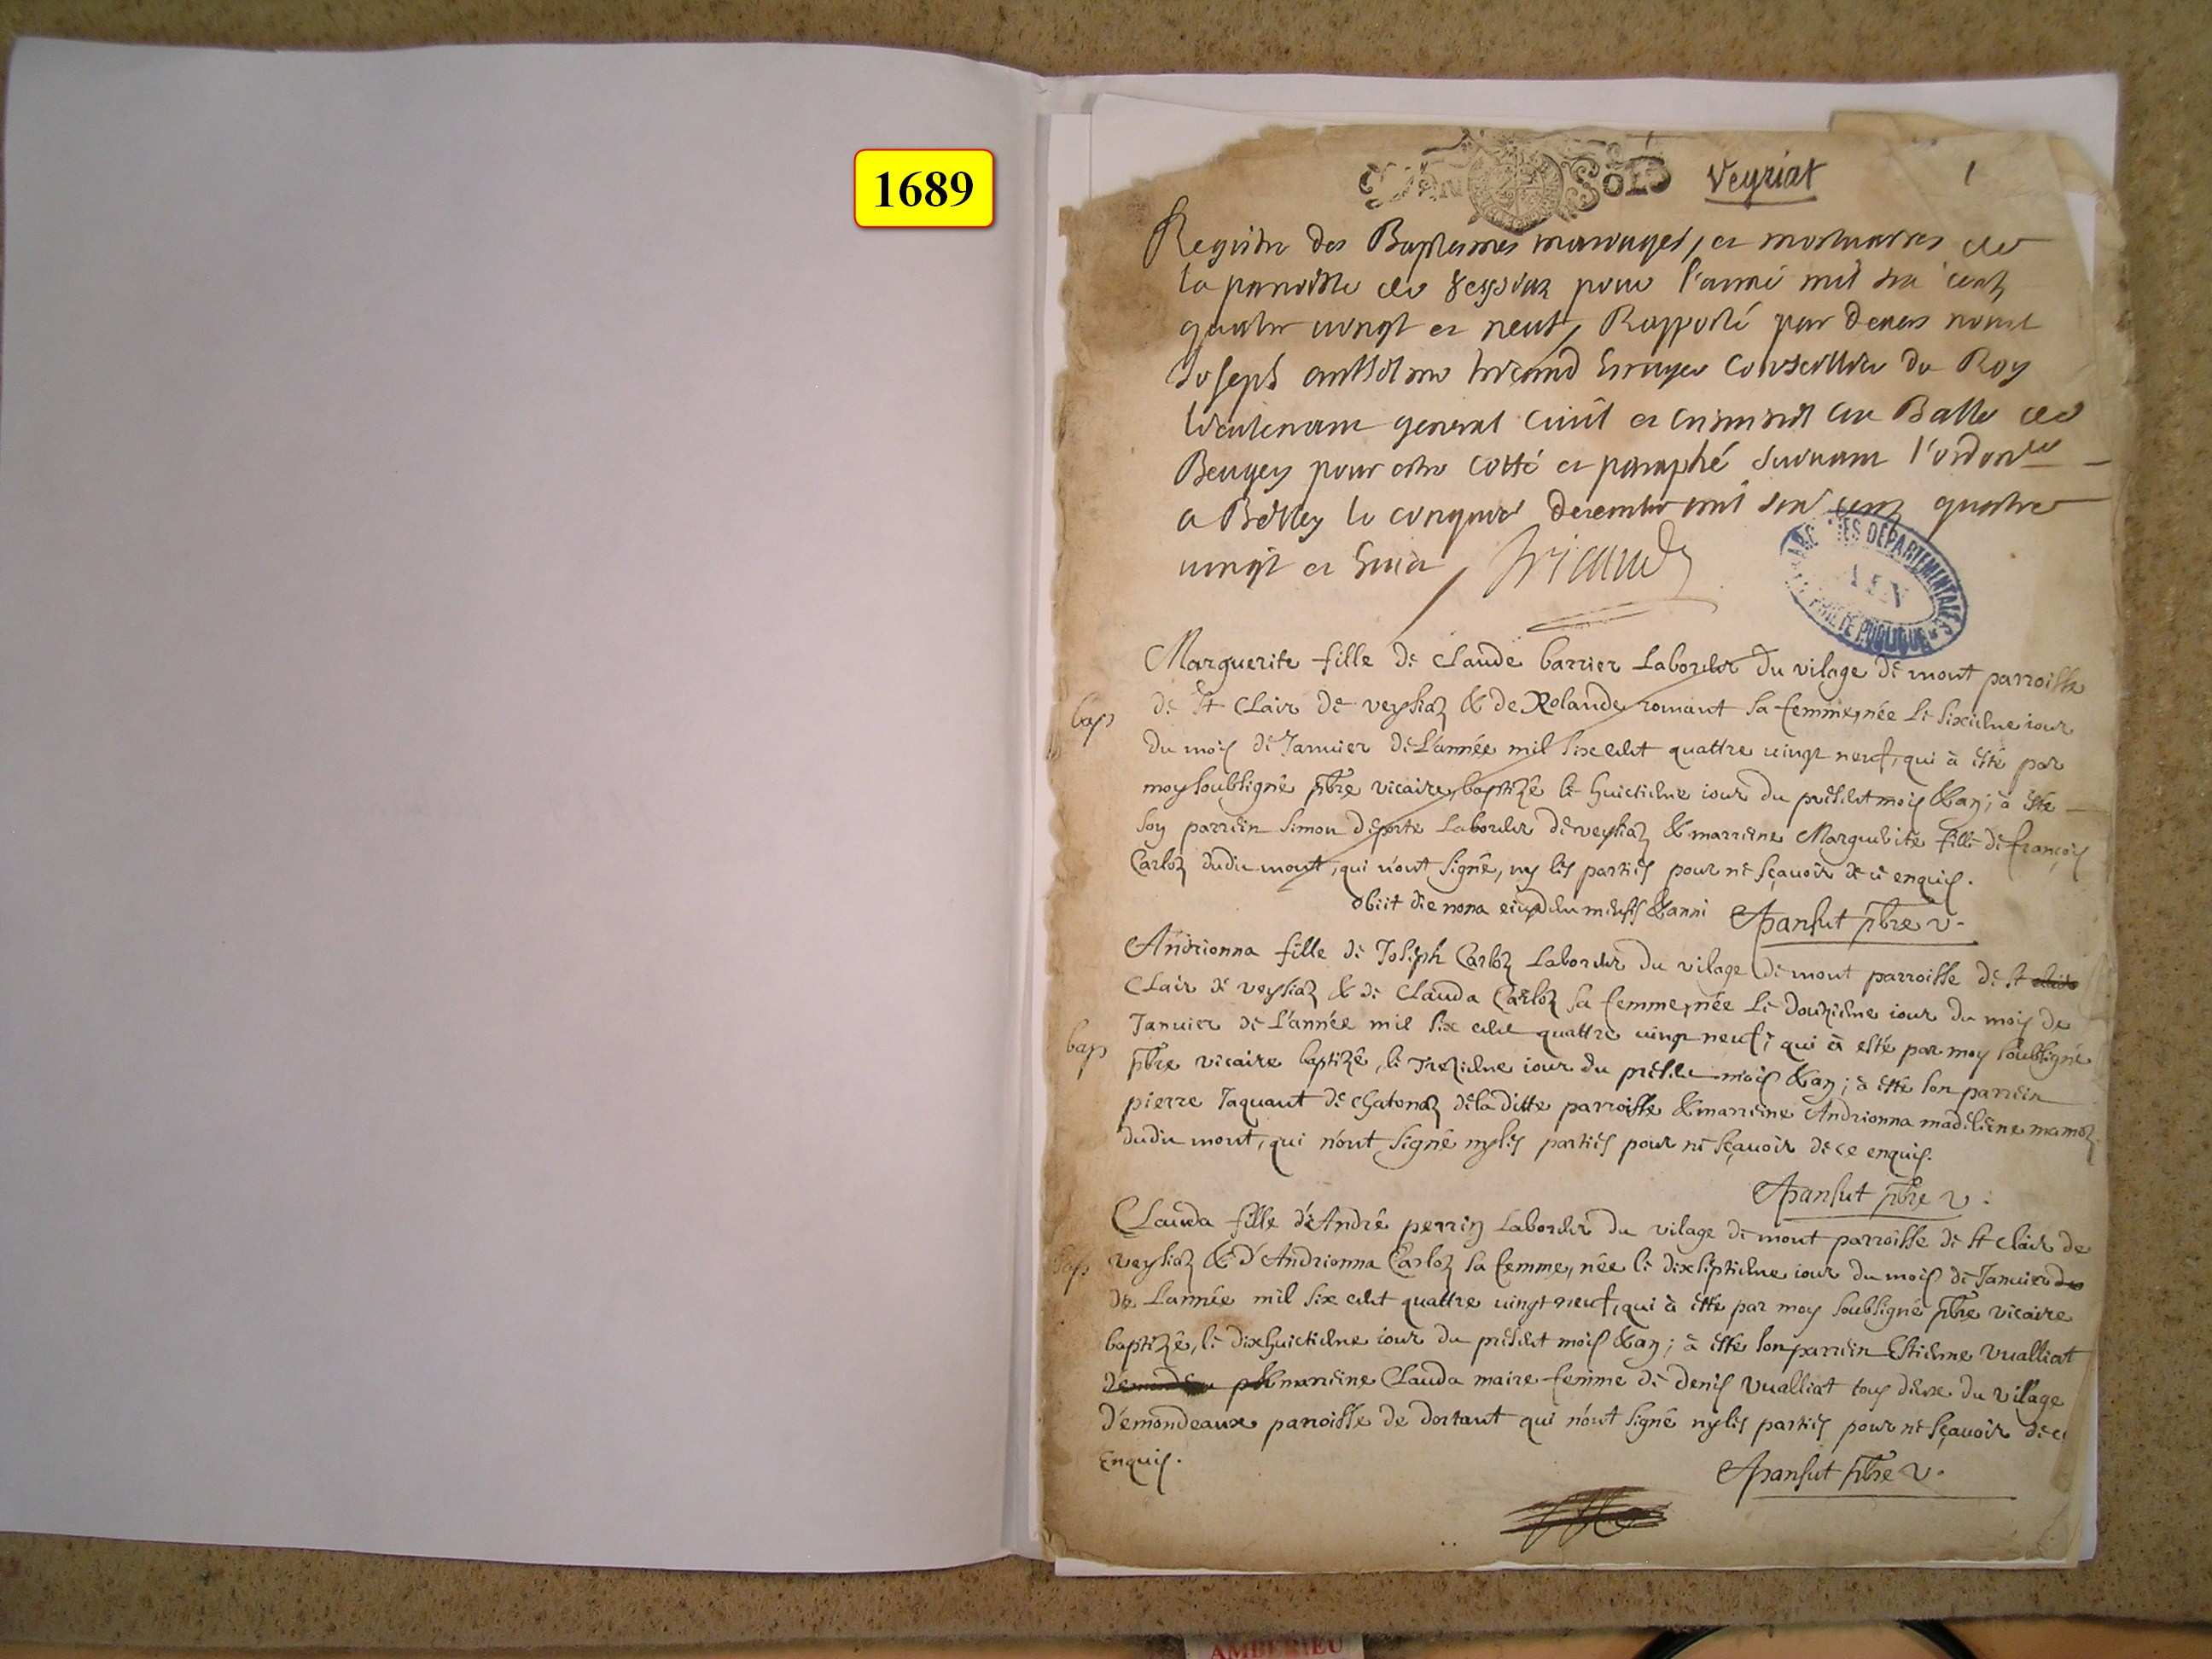 1689
Sols Veyriat 1
Registre des Baptesmes mariages, et mortuaires de
la parroisse de Veyziaz pour l'année mil six centz
quatre vingt et neuf, Rapporté par devers nous
Joseph anthelme tricaud Escuyer Conseillier du Roy
lieutenant general Civil et criminel au Balle de
Beugey pour estre cotté et paraphé suivant l'ordonce
a Belley le cinquie decembre mil six cens quatre
vingt et huict, Tricaud
ARCHIVES DÉPARTEMENTALES
AIN
PROPRIÉTÉ PUBLIQUE
Marguerite fille de Claude barrier Laboreur du vilage de mont parroisse
bap
de St Clair de veysiaz & de Rolande romant sa femme, née le sixieme iour
du mois de Januier de L'année mil six cent quattre uingt neuf, qui à esté par
moy soubsigné pbre vicaire, baptizé le huictieme iour du present mois & an; à esté
son parrein Simon deporte Laboreur de veysiaz & marreine Marguerite fille de françois
Carloz dudit mont, qui n'ont signé, ny les parties pour ne sçauoir de ce enquis.
obiit die nona eiusdem mensis & anni Apansut pbre v.
Andrionna fille de Joseph Carloz Laboreur du vilage de mont parroisse de st
Clair de veysiaz & de Clauda Carloz sa femme, née le douzieme iour du mois de
bap
Januier de L'année mil six cent quattre uingt neuf, qui à esté par moy soubsigné
pbre vicaire baptizé, le trezieme iour du present mois & an; à esté son parrein
pierre Jaquant de Chatonaz de la ditte parroisse & marreine Andrionna madeleine mamoz
dudit mont, qui n'ont signé ny les parties pour ne sçauoir de ce enquis.
Apansut pbre v.
Clauda fille d'André perrin Laboreur du vilage de mont parroisse de st Clair de
bap
veysiaz & d'Andrionna Carloz sa femme, née le dixseptieme iour du mois de Januier
de L'année mil six cent quattre uingt neuf, qui à esté par moy soubsigné pbre vicaire
baptizé, le dixhuictieme iour du present mois & an; à esté son parrein Estienne vualliat
& marreine Clauda maire femme de denis vualliat tous deux du vilage
d'emondeaux paroisse de dortant qui n'ont signé ny les parties pour ne sçauoir de ce
enquis.
Apansut pbre v.
AMBERIEU